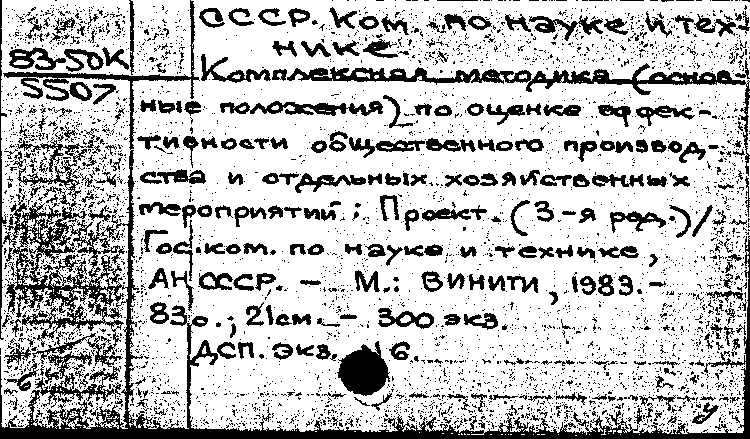 СССР. Ком. по науке и тех-
нике.
83-50К
5507
Комплексная методика (основ-
ные положения) по оценке эффек-
тивности общественного производ-
ства и отдельных хозяйственных
мероприятий: Проект. (3-я ред.)/
Гос. ком. по науке и технике,
АН СССР. — М.: ВИНИТИ, 1983. -
83с.; 21см. — 300 экз.
ДСП. Экз. 6.
6